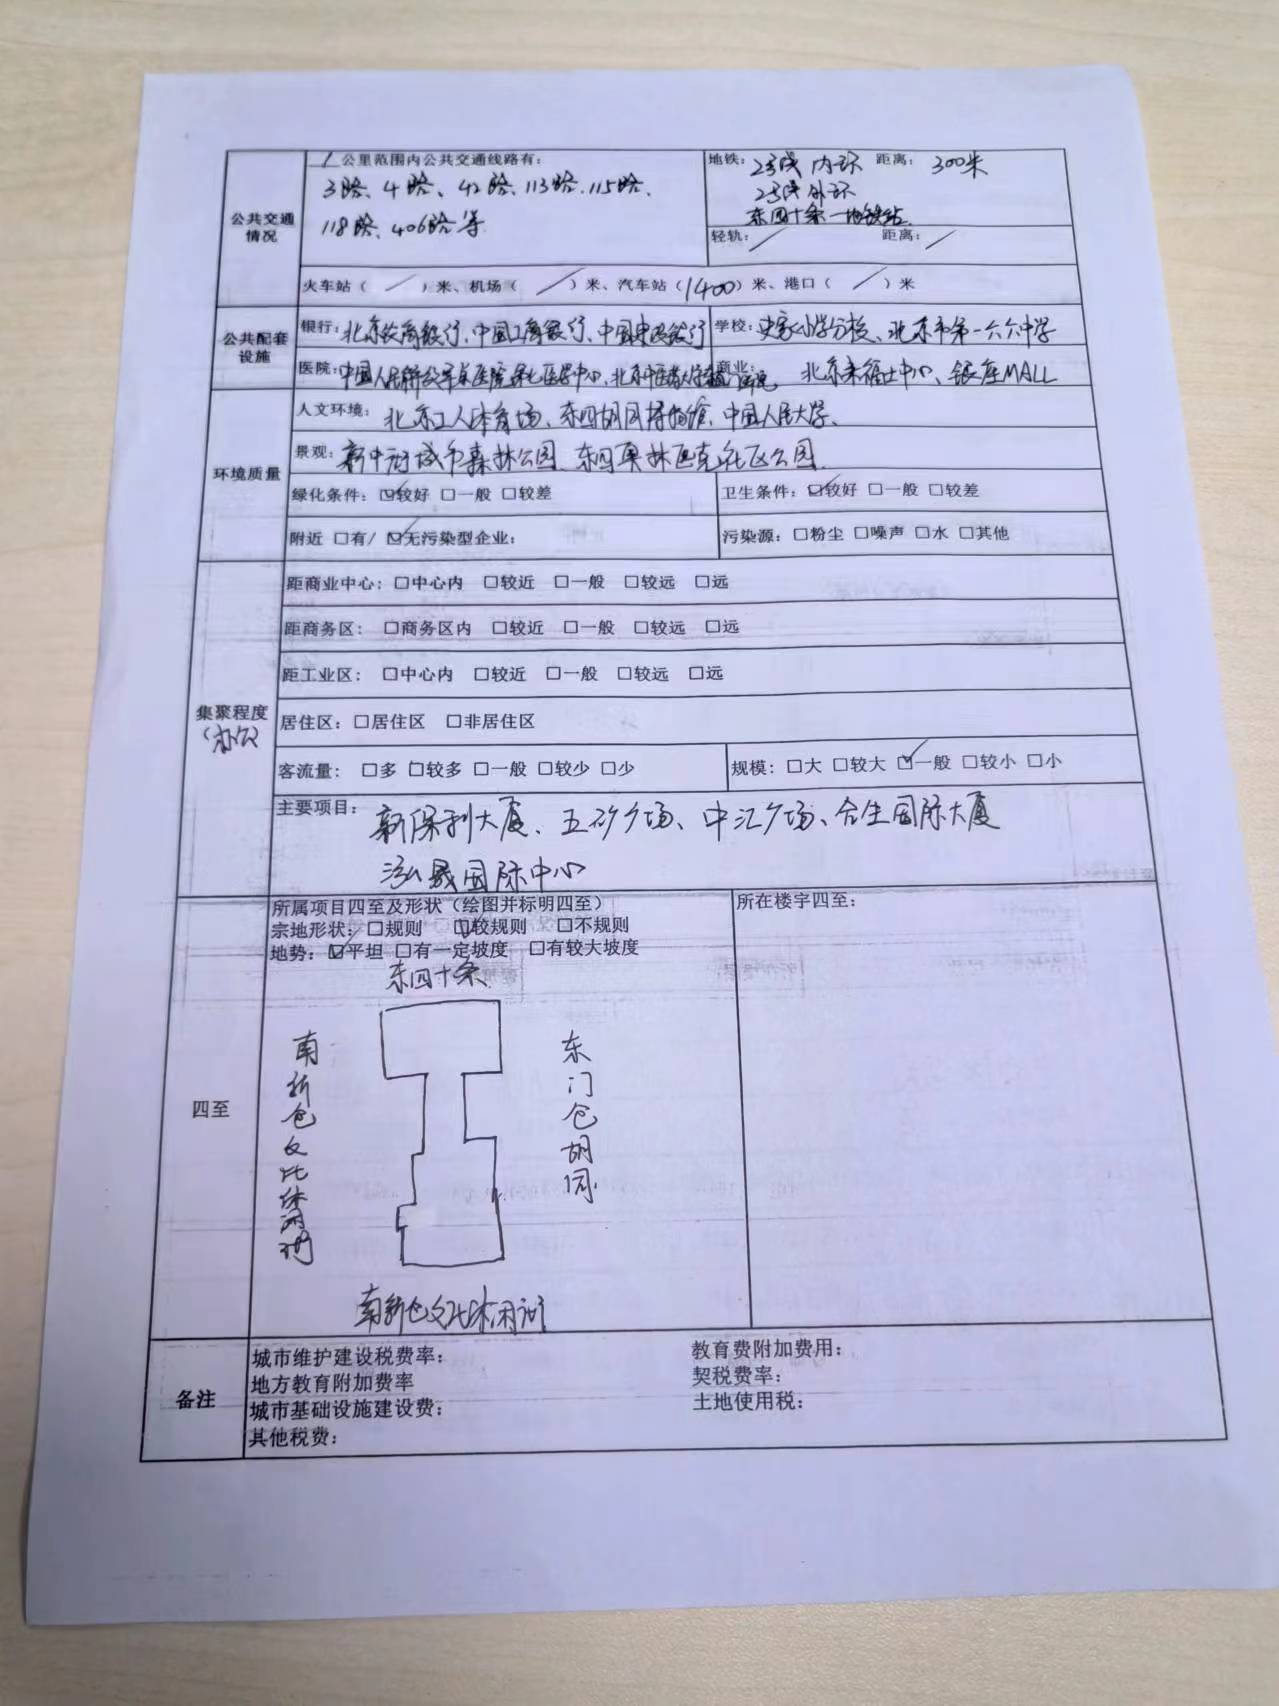 公共交通情况
1公里范围内公共交通线路有:
3路、4路、42路、113路、115路、
118路、406路等
地铁: 2号线 内环 距离: 300米
2号线 外环
东四十条-地铁站
轻轨: / 距离: /
火车站( / )米、机场( / )米、汽车站(1400)米、港口( / )米
公共配套设施
银行: 北京农商银行、中国工商银行、中国民生银行
学校: 史家小学分校、北京市第一六六中学
医院: 中国人民解放军总医院第七医学中心、北京中医
商业: 北京来福士中心、银座MALL
环境质量
人文环境: 北京工人体育场、东四胡同博物馆、中国人民大学、
景观: 新中街城市森林公园、东四奥林匹克社区公园
绿化条件: ☑较好 □一般 □较差
卫生条件: ☑较好 □一般 □较差
附近 □有/ ☑无污染型企业:
污染源: □粉尘 □噪声 □水 □其他
集聚程度
(办公)
距商业中心: □中心内 □较近 □一般 □较远 □远
距商务区: □商务区内 □较近 □一般 □较远 □远
距工业区: □中心内 □较近 □一般 □较远 □远
居住区: □居住区 □非居住区
客流量: □多 □较多 □一般 □较少 □少
规模: □大 □较大 ☑一般 □较小 □小
主要项目: 新保利大厦、五矿广场、中汇广场、合生国际大厦
泓晟国际中心
四至
所属项目四至及形状(绘图并标明四至)
宗地形状: □规则 ☑较规则 □不规则
地势: ☑平坦 □有一定坡度 □有较大坡度
所在楼宇四至:
东四十条
南新仓文化休闲街
东门仓胡同
南新仓文化休闲街
备注
城市维护建设税费率:
教育费附加费用:
地方教育附加费率
契税费率:
城市基础设施建设费:
土地使用税:
其他税费: